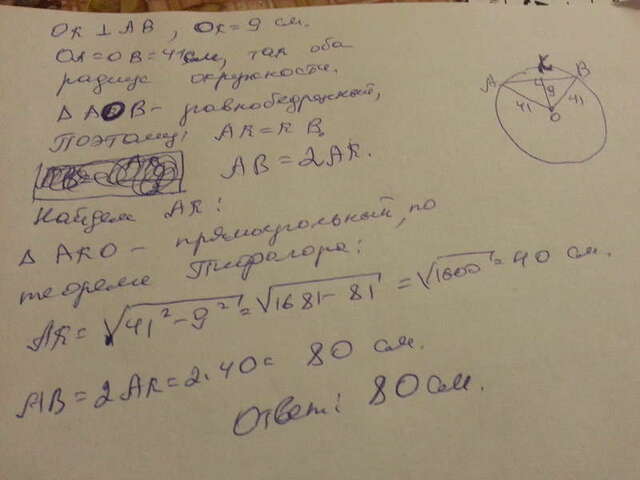 OK ⊥ AB, OK = 9 см.
OA = OB = 41 см, так оба
радиус окружности.
Δ AOB - равнобедренный,
Поэтому: AK = KB,
AB = 2AK.
Найдем AK:
Δ AKO - прямоугольный, по
теореме Пифагора:
AK = √41² - 9² = √1681 - 81 = √1600 = 40 см.
AB = 2AK = 2·40 = 80 см.
Ответ: 80 см.
K
A B
9
41 41
O